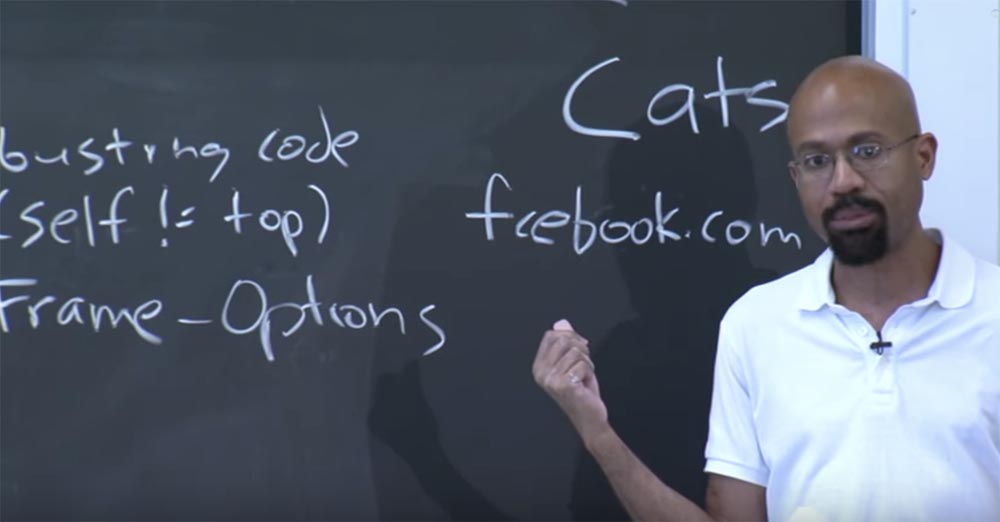 busting code
(self != top)
Frame-Options
Cats
fcebook.com